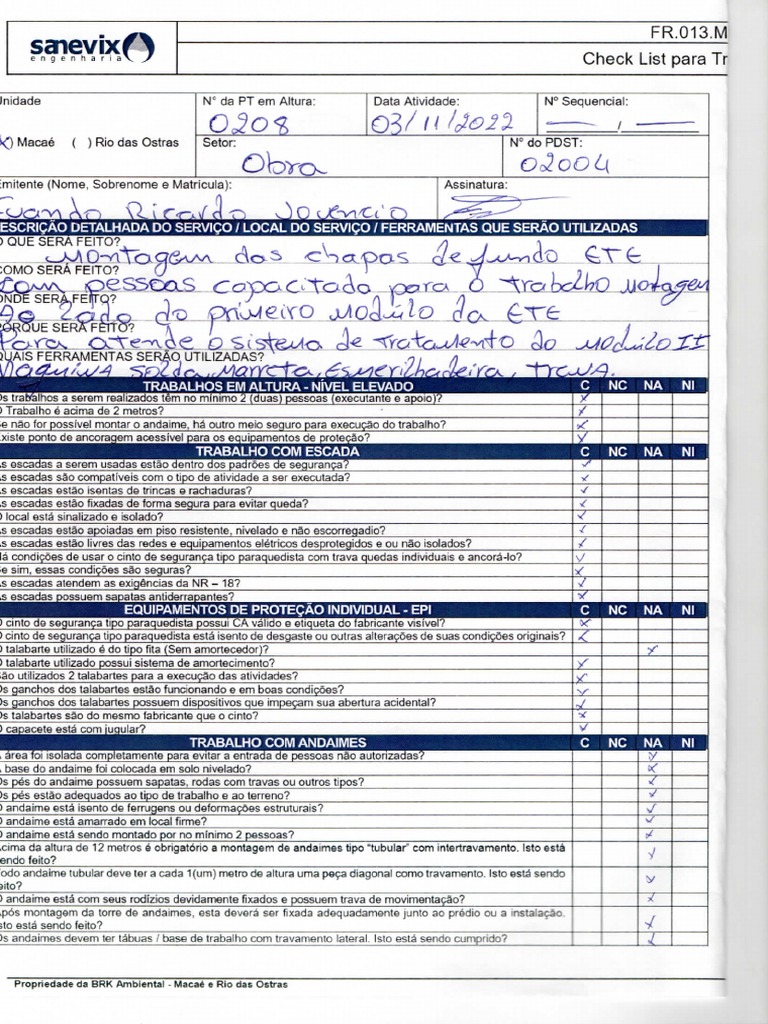 sanevix
engenharia
FR.013.M
Check List para Tr
nidade
Nº da PT em Altura:
Data Atividade:
Nº Sequencial:
0208
03/11/2022
/
Macaé ( ) Rio das Ostras
Setor:
Nº do PDST:
Obra
02004
Emitente (Nome, Sobrenome e Matrícula):
Assinatura:
Evando Ricardo Jovencio
ESCRIÇÃO DETALHADA DO SERVIÇO / LOCAL DO SERVIÇO / FERRAMENTAS QUE SERÃO UTILIZADAS
O QUE SERÁ FEITO?
Montagem das chapas de fundo ETE
COMO SERÁ FEITO?
com pessoas capacitada para o Trabalho Montagem
ONDE SERÁ FEITO?
Ao Lado do primeiro Modulo da ETE
PORQUE SERÁ FEITO?
Para atende o sistema de Tratamento do Modulo II
QUAIS FERRAMENTAS SERÃO UTILIZADAS?
Maquina solda, Marreta, Esmerilhadeira, Trena.
TRABALHOS EM ALTURA - NÍVEL ELEVADO C NC NA NI
Os trabalhos a serem realizados têm no mínimo 2 (duas) pessoas (executante e apoio)?
O Trabalho é acima de 2 metros?
Se não for possível montar o andaime, há outro meio seguro para execução do trabalho?
Existe ponto de ancoragem acessível para os equipamentos de proteção?
TRABALHO COM ESCADA C NC NA NI
As escadas a serem usadas estão dentro dos padrões de segurança?
As escadas são compatíveis com o tipo de atividade a ser executada?
As escadas estão isentas de trincas e rachaduras?
As escadas estão fixadas de forma segura para evitar queda?
O local está sinalizado e isolado?
As escadas estão apoiadas em piso resistente, nivelado e não escorregadio?
As escadas estão livres das redes e equipamentos elétricos desprotegidos e ou não isolados?
Há condições de usar o cinto de segurança tipo paraquedista com trava quedas individuais e ancorá-lo?
Se sim, essas condições são seguras?
As escadas atendem as exigências da NR – 18?
As escadas possuem sapatas antiderrapantes?
EQUIPAMENTOS DE PROTEÇÃO INDIVIDUAL - EPI C NC NA NI
O cinto de segurança tipo paraquedista possui CA válido e etiqueta do fabricante visível?
O cinto de segurança tipo paraquedista está isento de desgaste ou outras alterações de suas condições originais?
O talabarte utilizado é do tipo fita (Sem amortecedor)?
O talabarte utilizado possui sistema de amortecimento?
São utilizados 2 talabartes para a execução das atividades?
Os ganchos dos talabartes estão funcionando e em boas condições?
Os ganchos dos talabartes possuem dispositivos que impeçam sua abertura acidental?
Os talabartes são do mesmo fabricante que o cinto?
O capacete está com jugular?
TRABALHO COM ANDAIMES C NC NA NI
A área foi isolada completamente para evitar a entrada de pessoas não autorizadas?
A base do andaime foi colocada em solo nivelado?
Os pés do andaime possuem sapatas, rodas com travas ou outros tipos?
Os pés estão adequados ao tipo de trabalho e ao terreno?
O andaime está isento de ferrugens ou deformações estruturais?
O andaime está amarrado em local firme?
O andaime está sendo montado por no mínimo 2 pessoas?
Acima da altura de 12 metros é obrigatório a montagem de andaimes tipo "tubular" com intertravamento. Isto está
sendo feito?
Todo andaime tubular deve ter a cada 1(um) metro de altura uma peça diagonal como travamento. Isto está sendo
feito?
O andaime está com seus rodízios devidamente fixados e possuem trava de movimentação?
Após montagem da torre de andaimes, esta deverá ser fixada adequadamente junto ao prédio ou a instalação.
Isto está sendo feito?
Os andaimes devem ter tábuas / base de trabalho com travamento lateral. Isto está sendo cumprido?
Propriedade da BRK Ambiental - Macaé e Rio das Ostras